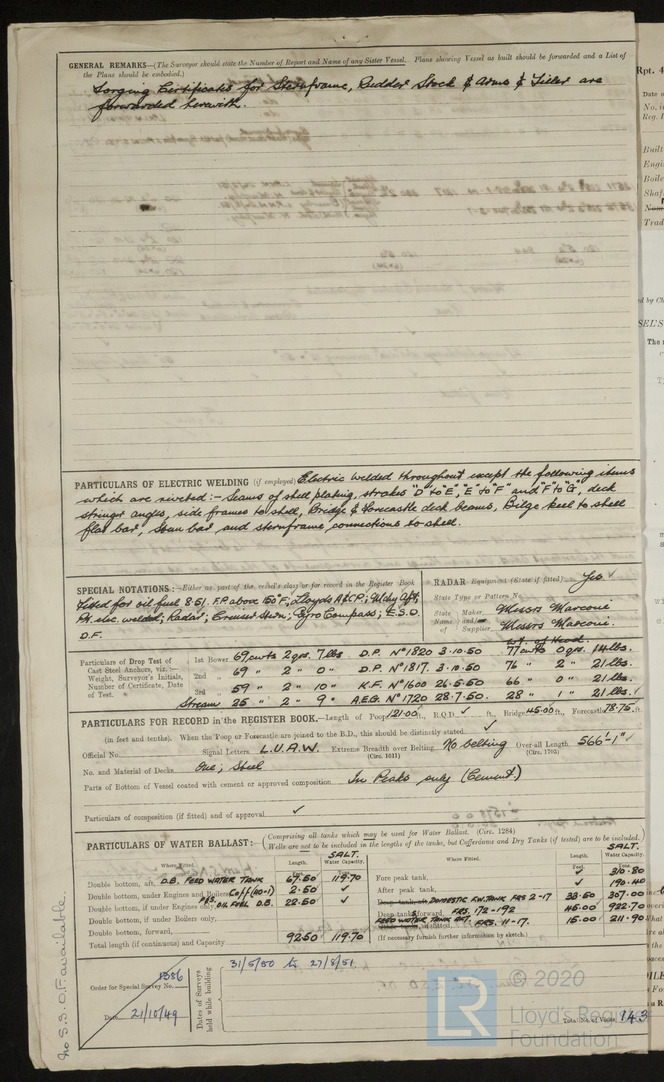 GENERAL REMARKS—(The Surveyor should state the Number of Report and Name of any Sister Vessel. Plans showing Vessel as built should be forwarded and a List of
the Plans should be embodied.)
Forging Certificates for Sternframe, Rudder Stock & Arms & Tiller are
forwarded herewith.
PARTICULARS OF ELECTRIC WELDING (if employed) Electric welded throughout except the following items
which are riveted :- Seams of shell plating, strakes "D" to "E", "E" to "F" and "F" to "G", deck
stringer angles, side frames to shell, Bridge & Forecastle deck beams, Bilge keel to shell
flat bar, Stem bar and sternframe connections to shell.
SPECIAL NOTATIONS:—Either as part of the vessel's class or for record in the Register Book
Fitted for oil fuel 8.51. F.P. above 150°F; Lloyds A&CP; Mchy Aft;
Pt. elec. welded; Radar; Cruiser Stern; Gyro Compass; E.S.D.
D.F.
RADAR Equipment (State if fitted) Yes ✓
State Type or Pattern No.
State Maker Messrs Marconi
Name and/or
of Supplier Messrs Marconi
Particulars of Drop Test of
Cast Steel Anchors, viz.:—
Weight, Surveyor's Initials,
Number of Certificate, Date
of Test.
1st Bower 69 cwts 2 qrs. 7 lbs D.P. No 1820 3.10.50 77 cwts 0 qrs. 14 lbs.
2nd " 69 " 2 " 0 " D.P. No 1817. 3.10.50 76 " 2 " 21 lbs.
3rd " 59 " 2 " 10 " K.F. No 1600 26.5.50 66 " 0 " 21 lbs.
Stream 25 " 2 " 9 " A.E.G. No 1720 28.7.50. 28 " 1 " 21 lbs.
PARTICULARS FOR RECORD in the REGISTER BOOK.—Length of Poop 121.00 ft., R.Q.D. ✓ ft., Bridge 45.00 ft., Forecastle 78.75 ft.
(in feet and tenths). When the Poop or Forecastle are joined to the B.D., this should be distinctly stated ✓
Official No. Signal Letters L.U.A.W. Extreme Breadth over Belting No belting Over-all Length 566'-1" ✓
(Circ. 1611) (Circ. 1703)
No. and Material of Decks One; Steel
Parts of Bottom of Vessel coated with cement or approved composition In Peaks only (Cement.)
Particulars of composition (if fitted) and of approval ✓
PARTICULARS OF WATER BALLAST:— (Comprising all tanks which may be used for Water Ballast. (Circ. 1284)
Wells are not to be included in the lengths of the tanks, but Cofferdams and Dry Tanks (if tested) are to be included.)
Where Fitted. Length. SALT. Water Capacity.
Double bottom, aft, D.B. FEED WATER TANK 67.50 119.70
Double bottom, under Engines and Boilers Coff (10-11) 2.50 ✓
Double bottom, if under Engines only, P&S. OIL FUEL D.B. 22.50 ✓
Double bottom, if under Boilers only,
Double bottom, forward,
Total length (if continuous) and Capacity 92.50 119.70
Where Fitted. Length. SALT. Water Capacity.
Fore peak tank, ✓ 310.80
After peak tank, ✓ 190.40
DOMESTIC F.W. TANK FRS 2-17 38.50 307.00
Deep tank, forward, FRS. 172-192 45.00 922.70
FEED WATER TANK AFT. FRS. 11-17. 15.00 211.90
(If necessary furnish further information by sketch.)
Order for Special Survey No. 1386
Date 21/10/49
Dates of Surveys
held while building
31/5/50 to 27/8/51
Total No. of Visits 143
No S.S.O.F. available.
© 2020
Lloyd's Register
Foundation
LR
Rpt. 4